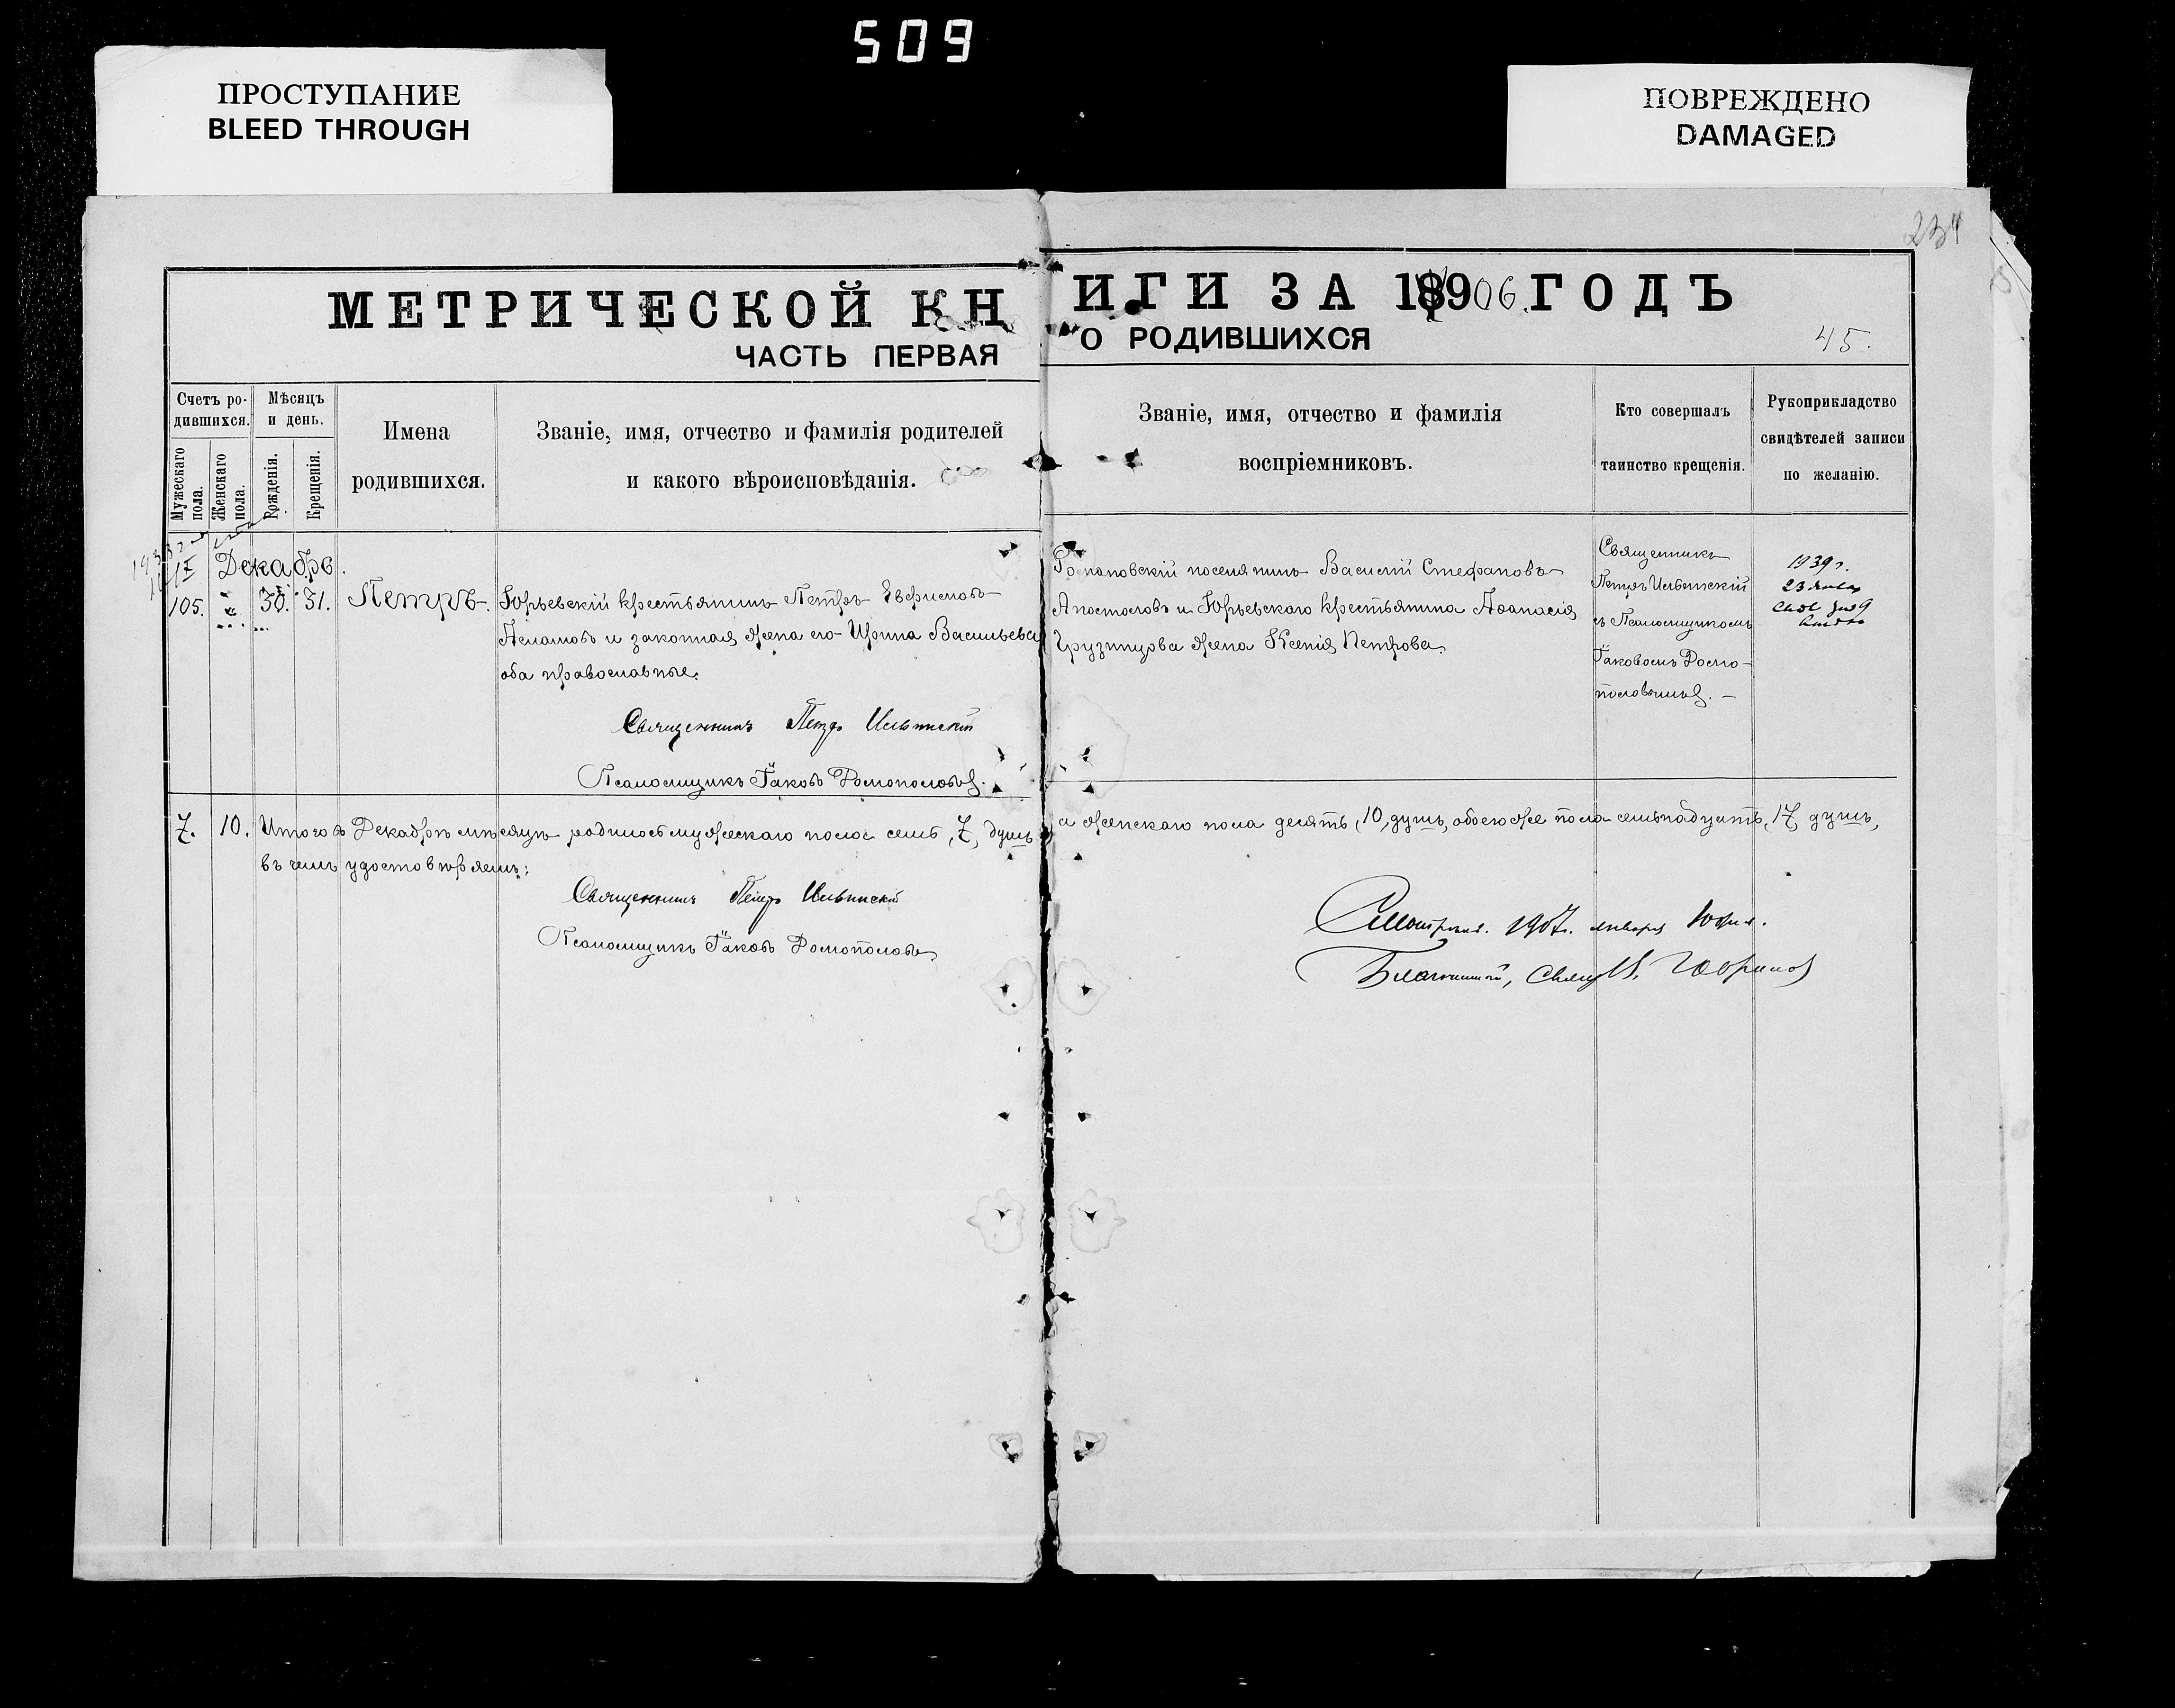 509
ПРОСТУПАНИЕ
BLEED THROUGH
ПОВРЕЖДЕНО
DAMAGED
234
МЕТРИЧЕСКОЙ КНИГИ ЗА 1906 ГОДЪ
ЧАСТЬ ПЕРВАЯ О РОДИВШИХСЯ
45.
Счетъ ро-
дившихся.
Мужескаго пола.
Женскаго пола.
Мѣсяцъ
и день.
Рожденія.
Крещенія.
Имена
родившихся.
Званіе, имя, отчество и фамилія родителей
и какого вѣроисповѣданія.
Званіе, имя, отчество и фамилія
воспріемниковъ.
Кто совершалъ
таинство крещенія.
Рукоприкладство
свидѣтелей записи
по желанію.
Декабрь.
105.
30.
31.
Петръ.
Юрьевскій крестьянинъ Петръ
и законная жена его Ирина Васильева
оба православные.
Священникъ Петръ Ильинскій
Псаломщикъ Іаковъ
Романовскій поселянинъ Василій Стефановъ
Апостоловъ и Юрьевскаго крестьянина Аѳанасія
Грузинцова жена Ксенія Петрова.
Священникъ
Петръ Ильинскій
съ Псаломщикомъ
Іаковомъ
1939 г.
23
7.
10.
Итого въ Декабрѣ мѣсяцѣ родилось мужескаго пола семь, 7, душъ
а женскаго пола десять, 10, душъ, обоего же пола семьнадцать, 17, душъ,
въ чемъ удостовѣряемъ:
Священникъ Петръ Ильинскій
Псаломщикъ Іаковъ
1907 г. января 10 дня.
Благочинный,